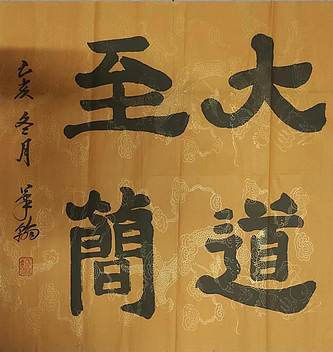 大道
至簡
乙亥冬月